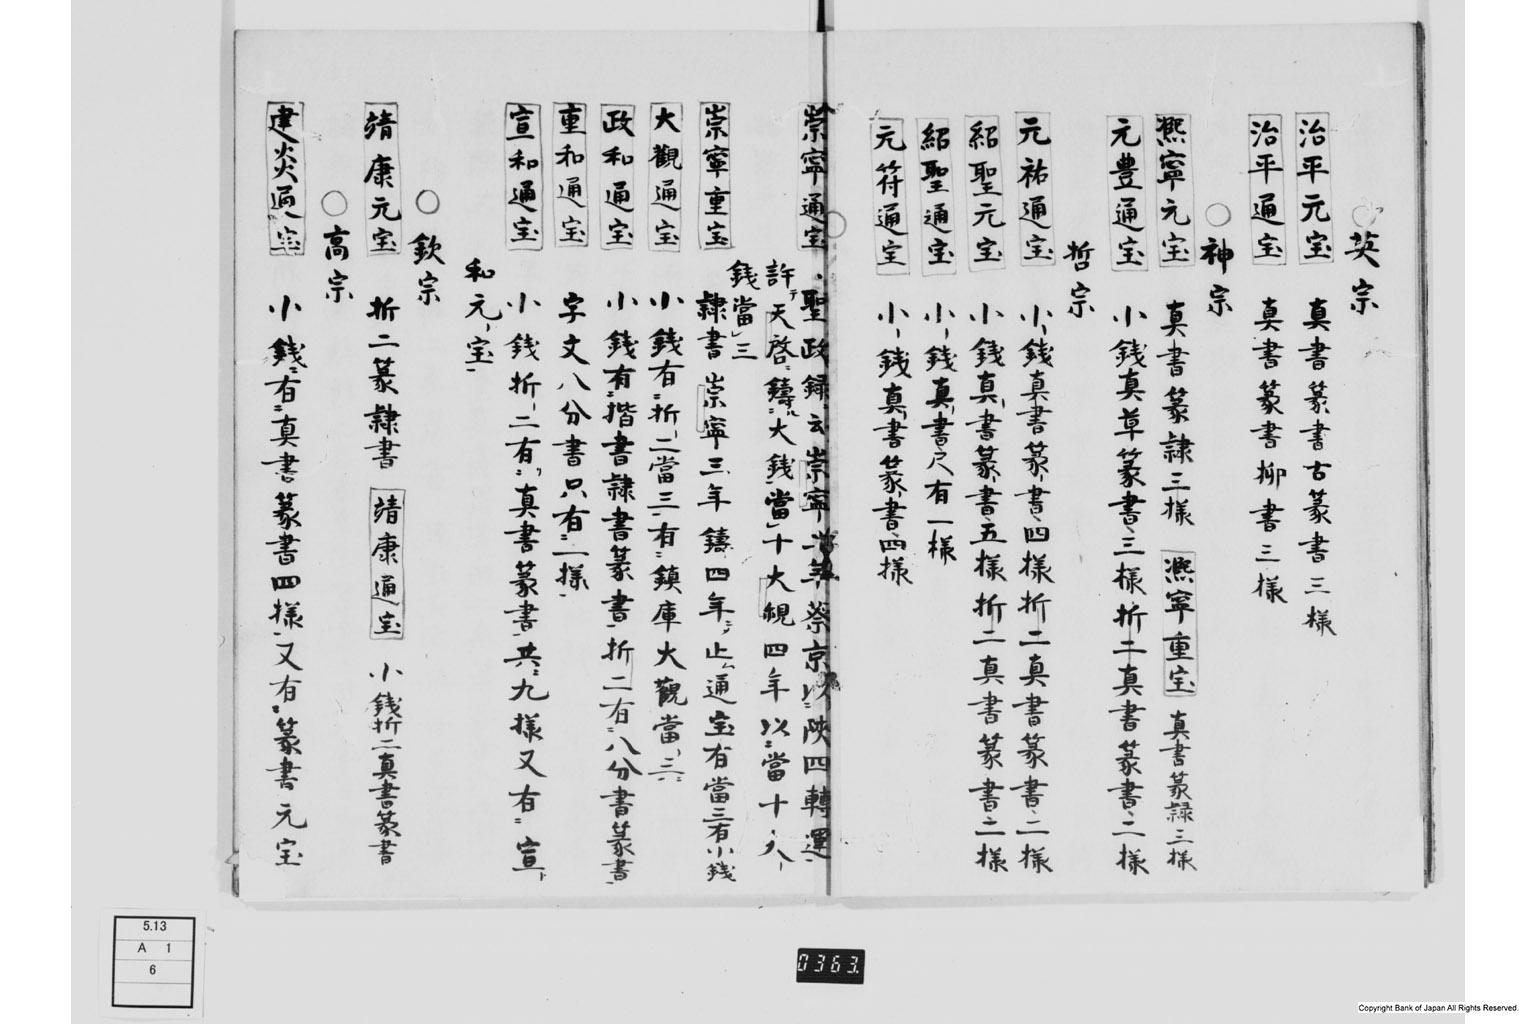 ○英宗
治平元宝 真書篆書古篆書三様
治平通宝 真書篆書柳書三様
○神宗
熈寧元宝 真書篆隷三様 熈寧重宝 真書篆隷三様
元豊通宝 小銭真草篆書三様折二真書篆書二様
哲宗
元祐通宝 小銭真書篆書四様折二真書篆書二様
紹聖元宝 小銭真書篆書五様折二真書篆書二様
紹聖通宝 小銭真書尺有一様
元符通宝 小銭真書篆書四様
○
崇寧通宝 聖政録云崇寧 年蔡京以陝四轉運
許テ天啓鑄大銭當十大観四年以當十人
銭當三
崇寧重宝 隷書崇寧三年鑄四年ニ止ム通宝有當三有小銭
大觀通宝 小銭有折二當三有鎮庫大觀當三
政和通宝 小銭有揩書隷書篆書折二有八分書篆書
重和通宝 字文八分書只有一様
宣和通宝 小銭折二有真書篆書共九様又有宣
和元宝
○欽宗
靖康元宝 折二篆隷書 靖康通宝 小銭折二真書篆書
○高宗
建炎通宝 小銭有真書篆書四様又有篆書元宝
5.13
A 1
6
0363.
Copyright Bank of Japan All Rights Reserved.